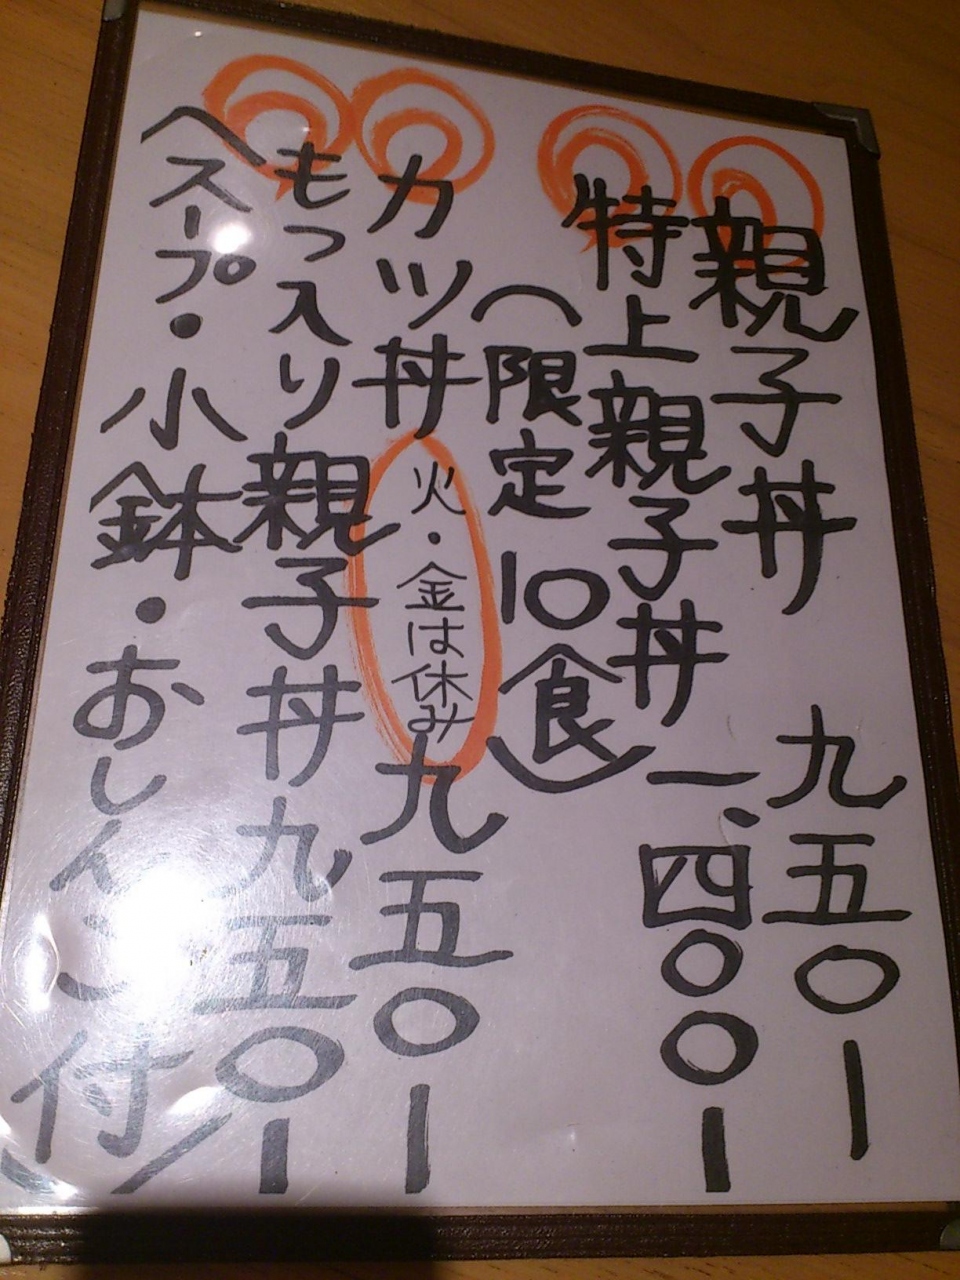 親子丼 九五〇ー
特上親子丼 一、四〇〇ー
(限定10食)
カツ丼 火・金は休み 九五〇ー
もつ入り親子丼 九五〇ー
〈スープ・小鉢・おしんこ付〉